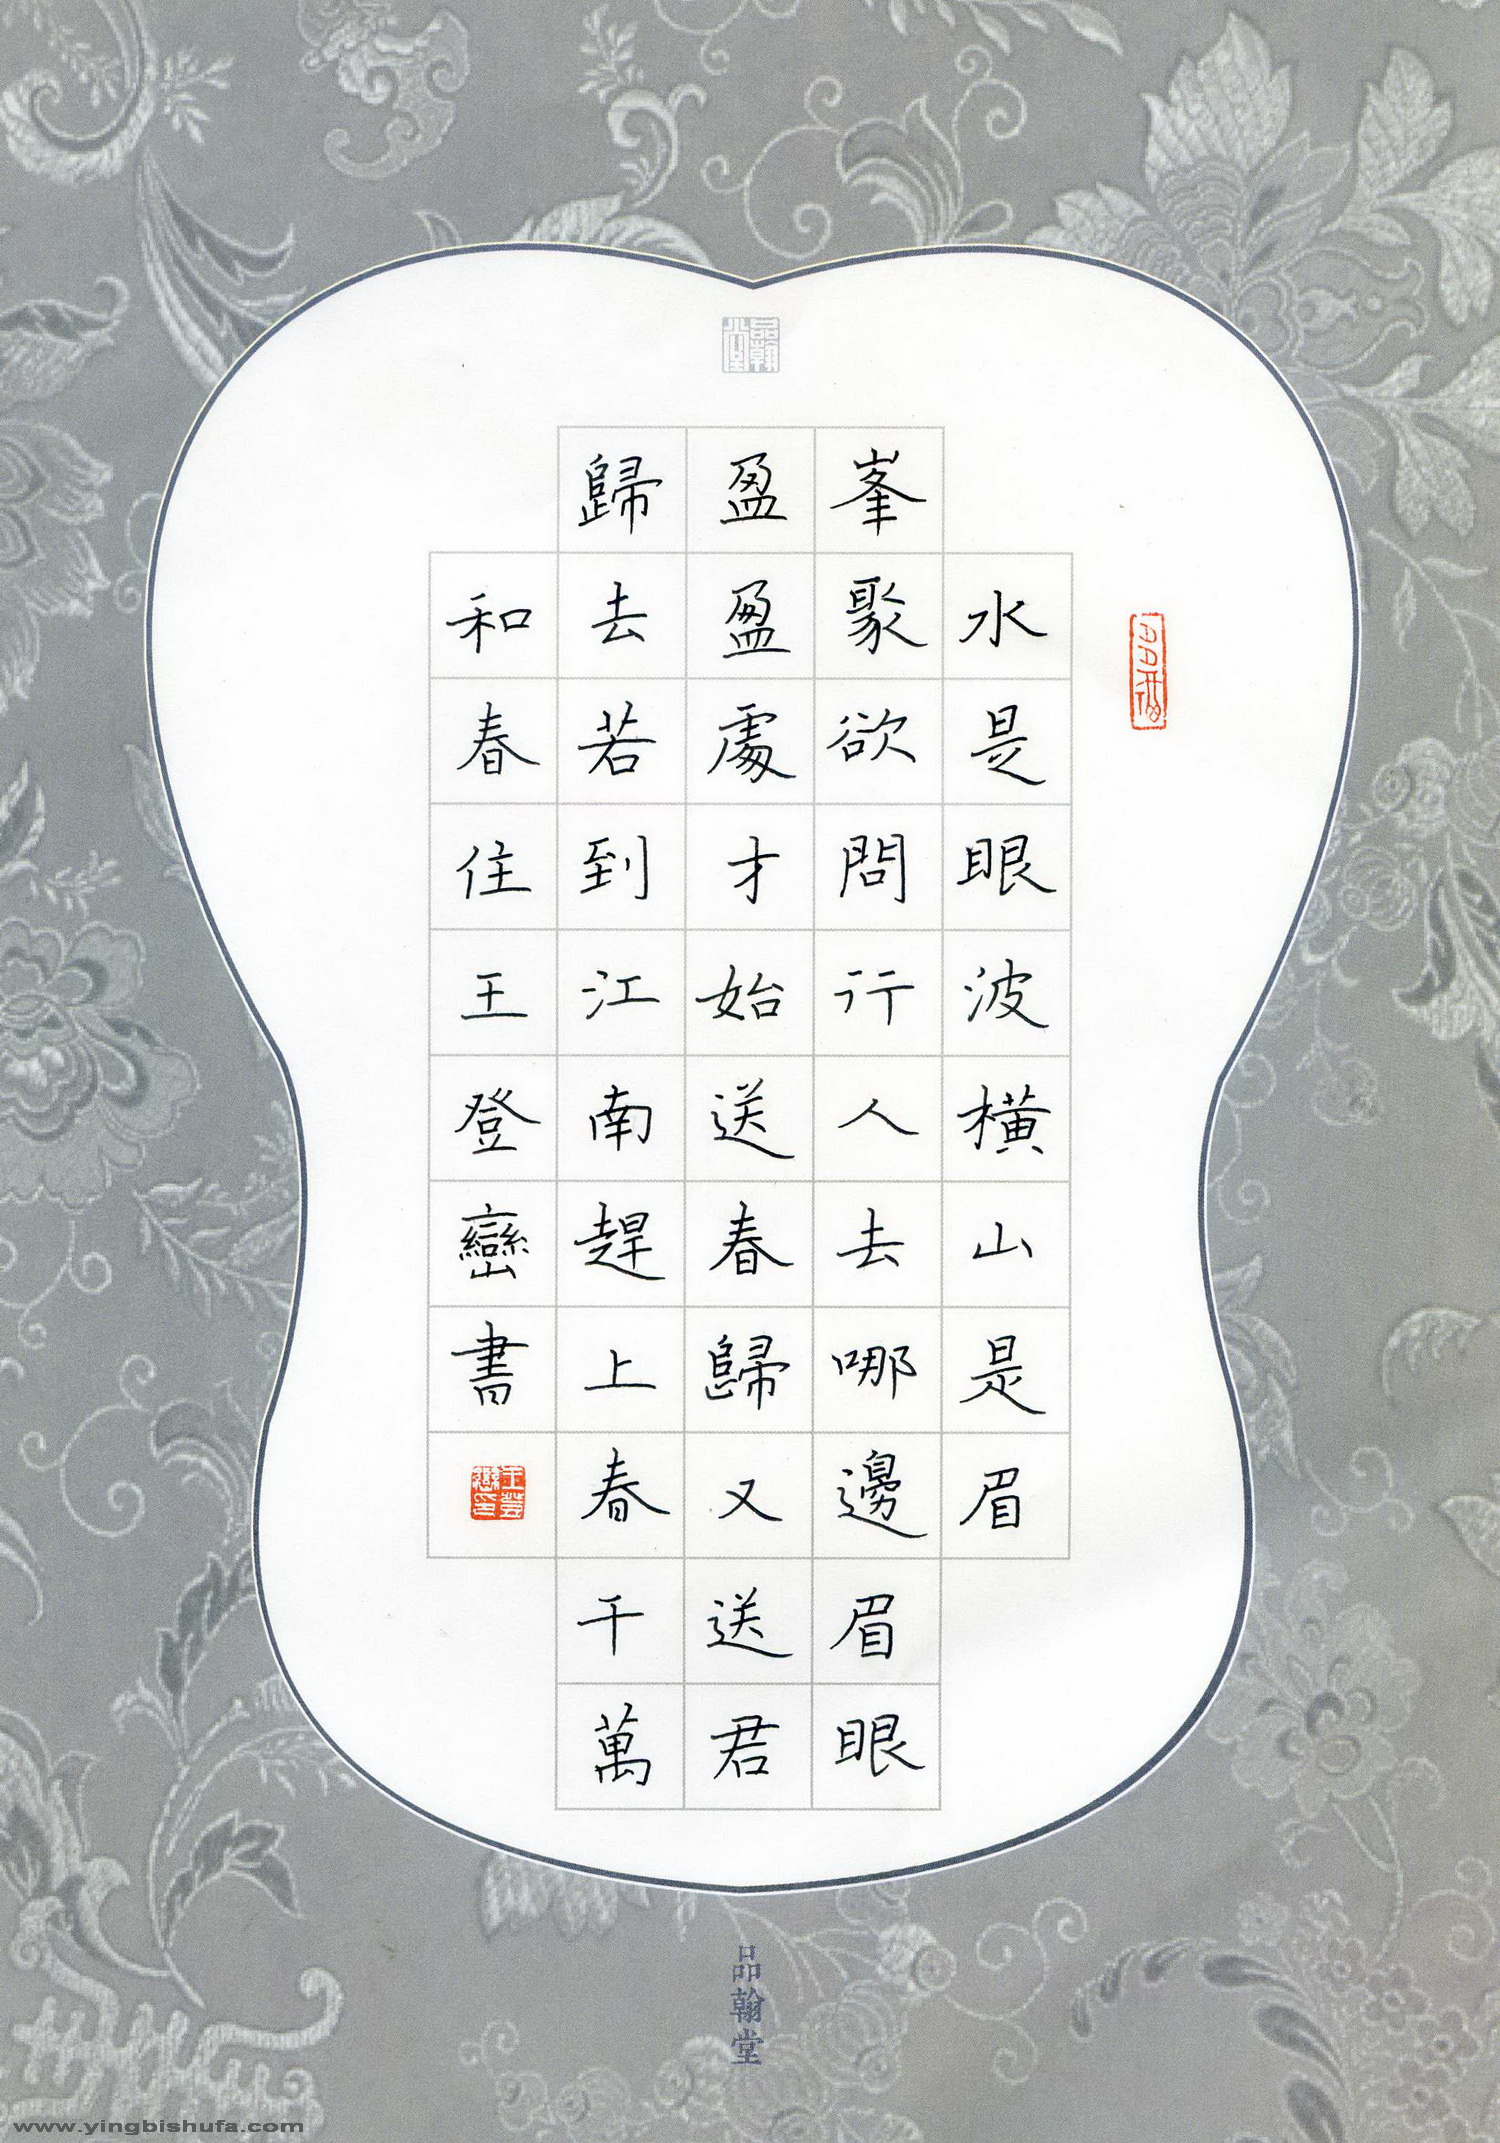 水是眼波橫山是眉
峯聚欲問行人去哪邊眉眼
盈盈處才始送春歸又送君
歸去若到江南趕上春千萬
和春住王登巒書
品翰堂
www.yingbishufa.com